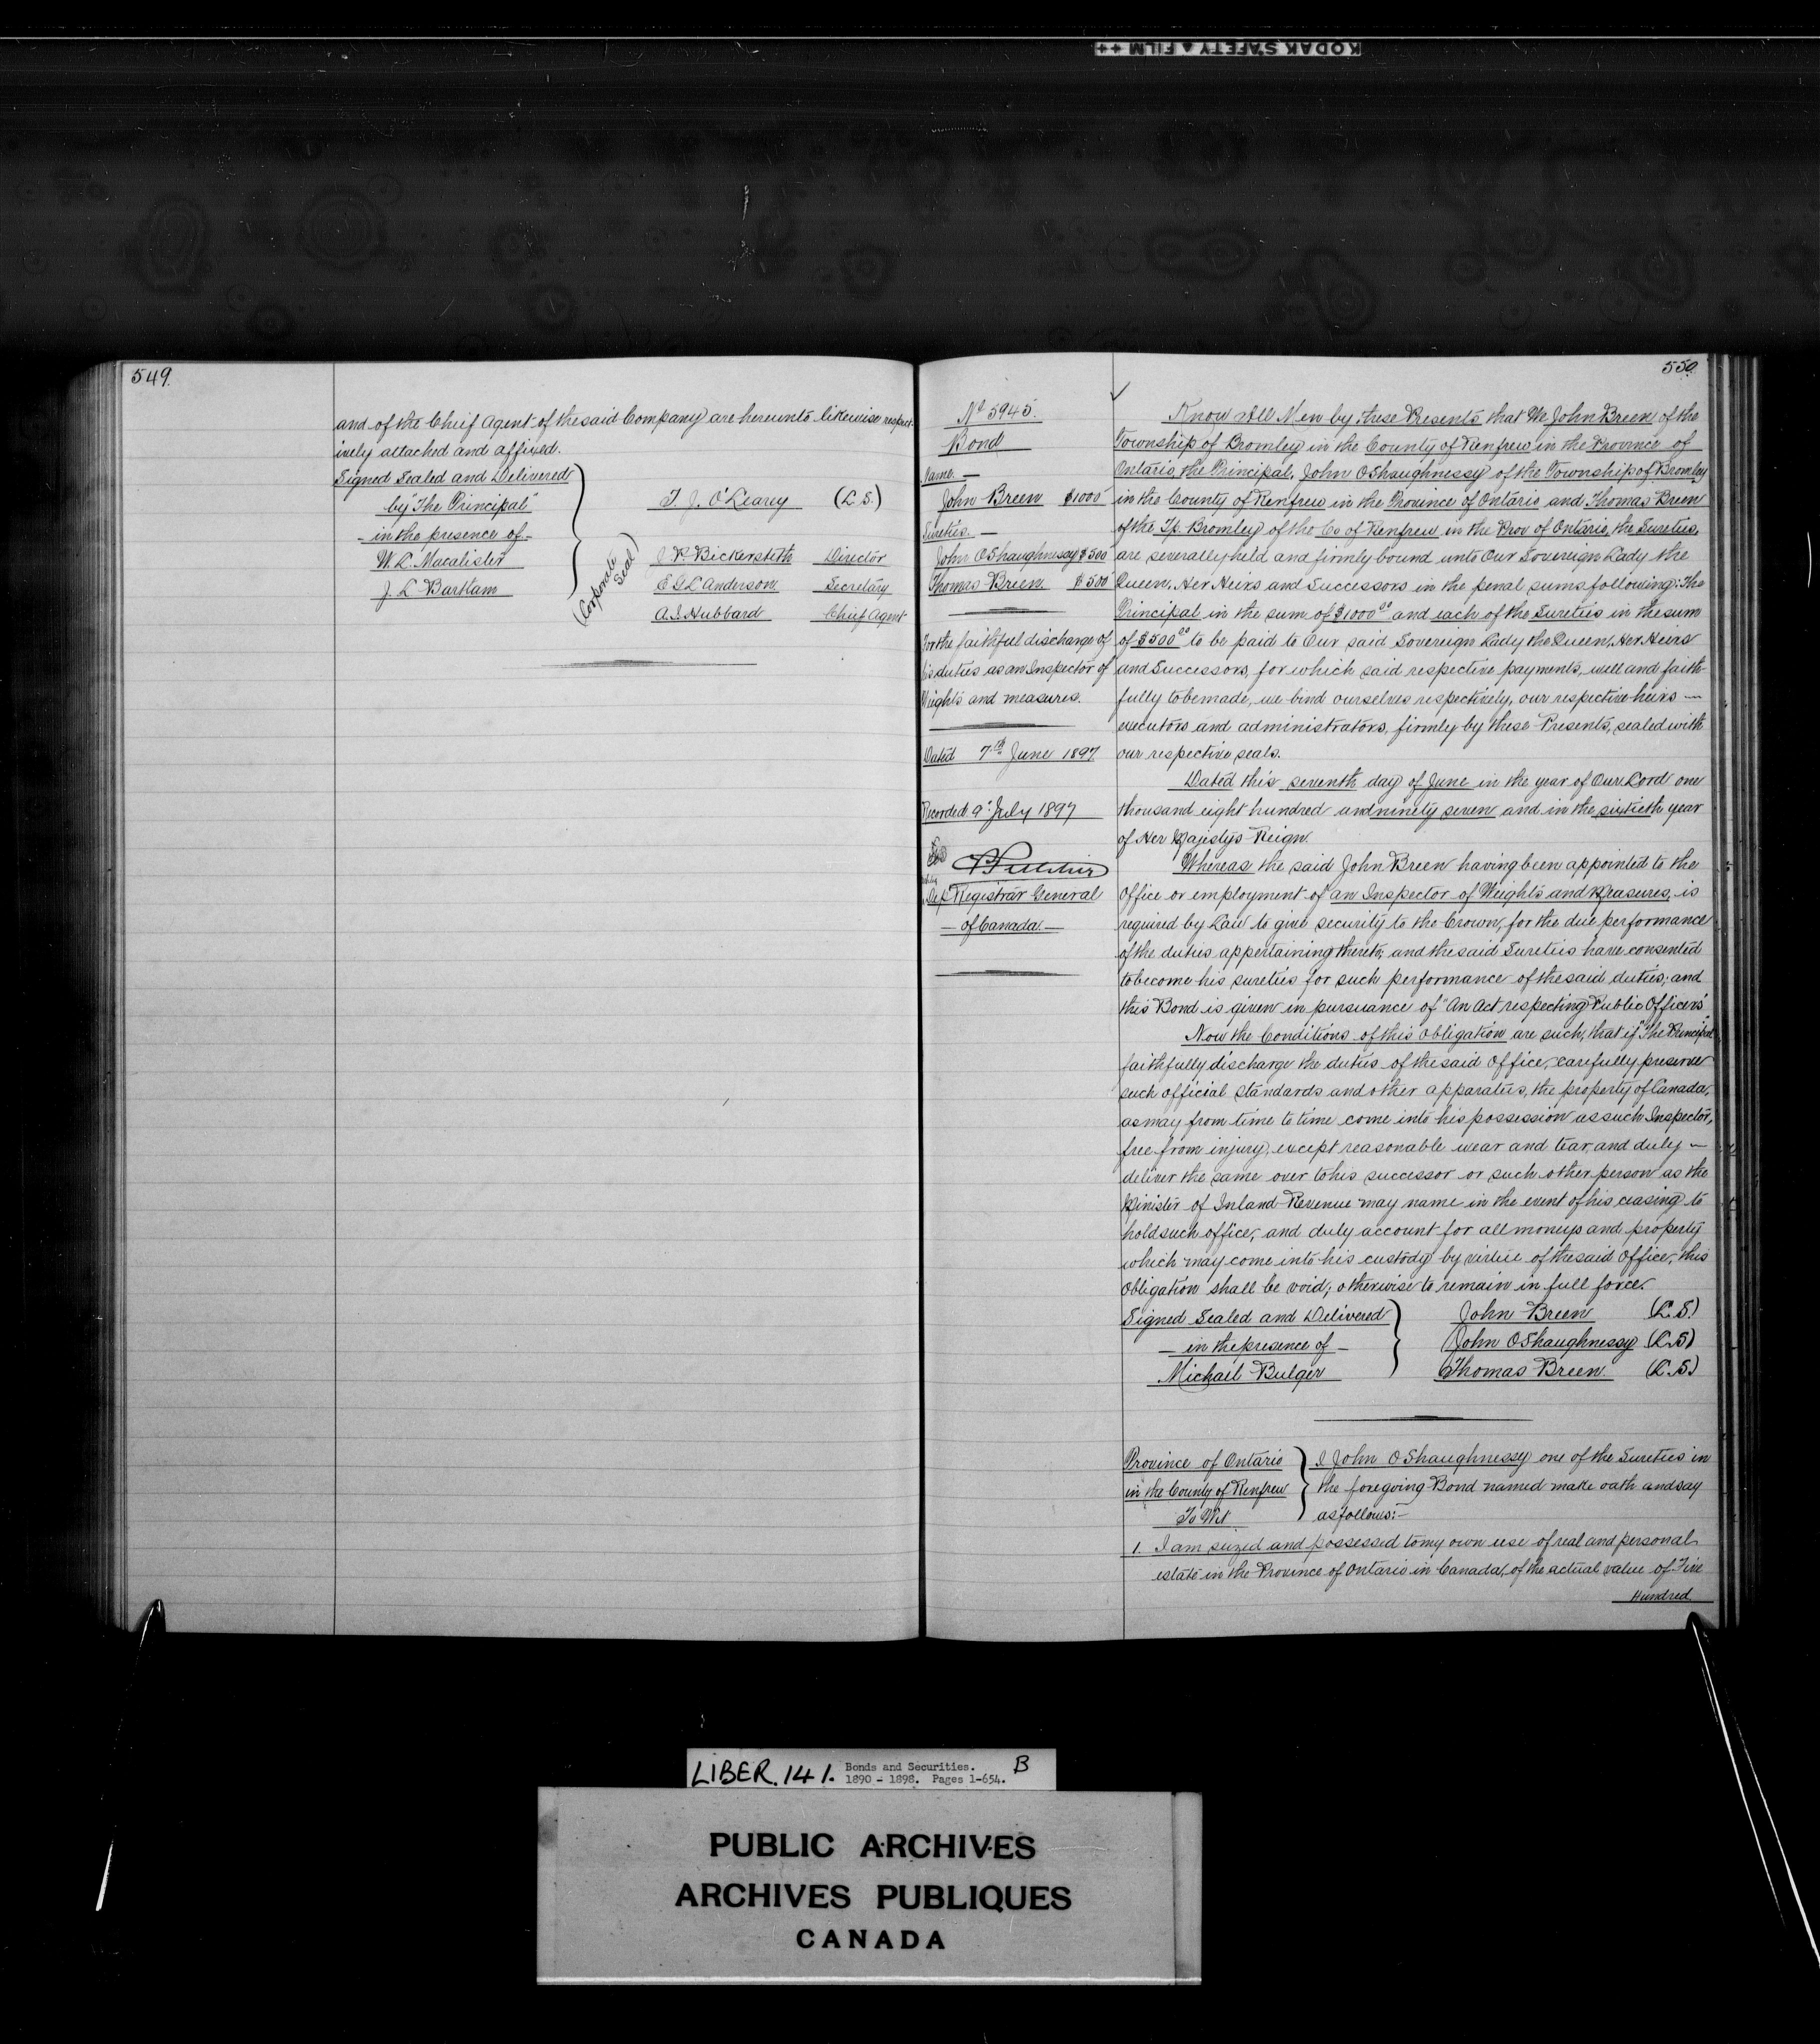 KODAK SAFETY ▲ FILM ++
549.
and of the Chief Agent of the said Company are hereunto likewise respect-
ively attached and affixed.
Signed Sealed and Delivered
by "The Principal"
- in the presence of -
W. L. Macalister
J. L. Bartlam
T. J. O'Leary (L.S.)
(Corporate Seal)
J. P. Bickersteth Director
E G L Anderson Secretary
A. I. Hubbard Chief Agent
550.
No 5945.
Bond
Name. —
John Breen $1000
Sureties. —
John OShaughnessy $500
Thomas Breen $500
For the faithful discharge of
his duties as an Inspector of
Weights and measures.
Dated 7th June 1897
Recorded 9th July 1897
Dep. Registrar General
— of Canada. —
Know All Men by these Presents that We John Breen of the
Township of Bromley in the County of Renfrew in the Province of
Ontario, the Principal, John OShaughnessy of the Township of Bromley
in the County of Renfrew in the Province of Ontario and Thomas Breen
of the Tp. Bromley of the Co of Renfrew in the Prov of Ontario, the Sureties,
are severally held and firmly bound unto Our Sovereign Lady the
Queen, Her Heirs and Successors in the penal sums following: The
Principal in the sum of $1000.00 and each of the Sureties in the sum
of $500.00 to be paid to Our said Sovereign Lady the Queen, Her Heirs
and Successors, for which said respective payments, well and faith-
fully to be made, we bind ourselves respectively, our respective heirs —
executors and administrators, firmly by these Presents, sealed with
our respective seals.
Dated this seventh day of June in the year of Our Lord one
thousand eight hundred and ninety seven and in the sixtieth year
of Her Majestys Reign.
Whereas the said John Breen having been appointed to the
Office or employment of an Inspector of Weights and Measures, is
required by Law to give security to the Crown, for the due performance
of the duties appertaining thereto; and the said Sureties have consented
to become his sureties for such performance of the said duties; and
this Bond is given in pursuance of "An Act respecting Public Officers"
Now the Conditions of this obligation are such, that if "The Principal"
faithfully discharge the duties of the said Office, carefully preserve
such official standards and other apparatus, the property of Canada,
as may from time to time come into his possession as such Inspector,
free from injury, except reasonable wear and tear, and duly —
deliver the same over to his successor or such other person as the
Minister of Inland Revenue may name in the event of his ceasing to
hold such office, and duly account for all moneys and property
which may come into his custody by virtue of the said Office, this
Obligation shall be void; otherwise to remain in full force.
Signed Sealed and Delivered
— in the presence of —
Michael Bulger
John Breen (L.S.)
John OShaughnessy (L.S)
Thomas Breen. (L.S.)
Province of Ontario
in the County of Renfrew
To Wit
I John OShaughnessy one of the Sureties in
the foregoing Bond named make oath and say
as follows:—
1. I am seized and possessed to my own use of real and personal
estate in the Province of Ontario in Canada, of the actual value of Five
Hundred
LIBER. 141. Bonds and Securities. B
1890 - 1898. Pages 1-654.
PUBLIC ARCHIVES
ARCHIVES PUBLIQUES
CANADA